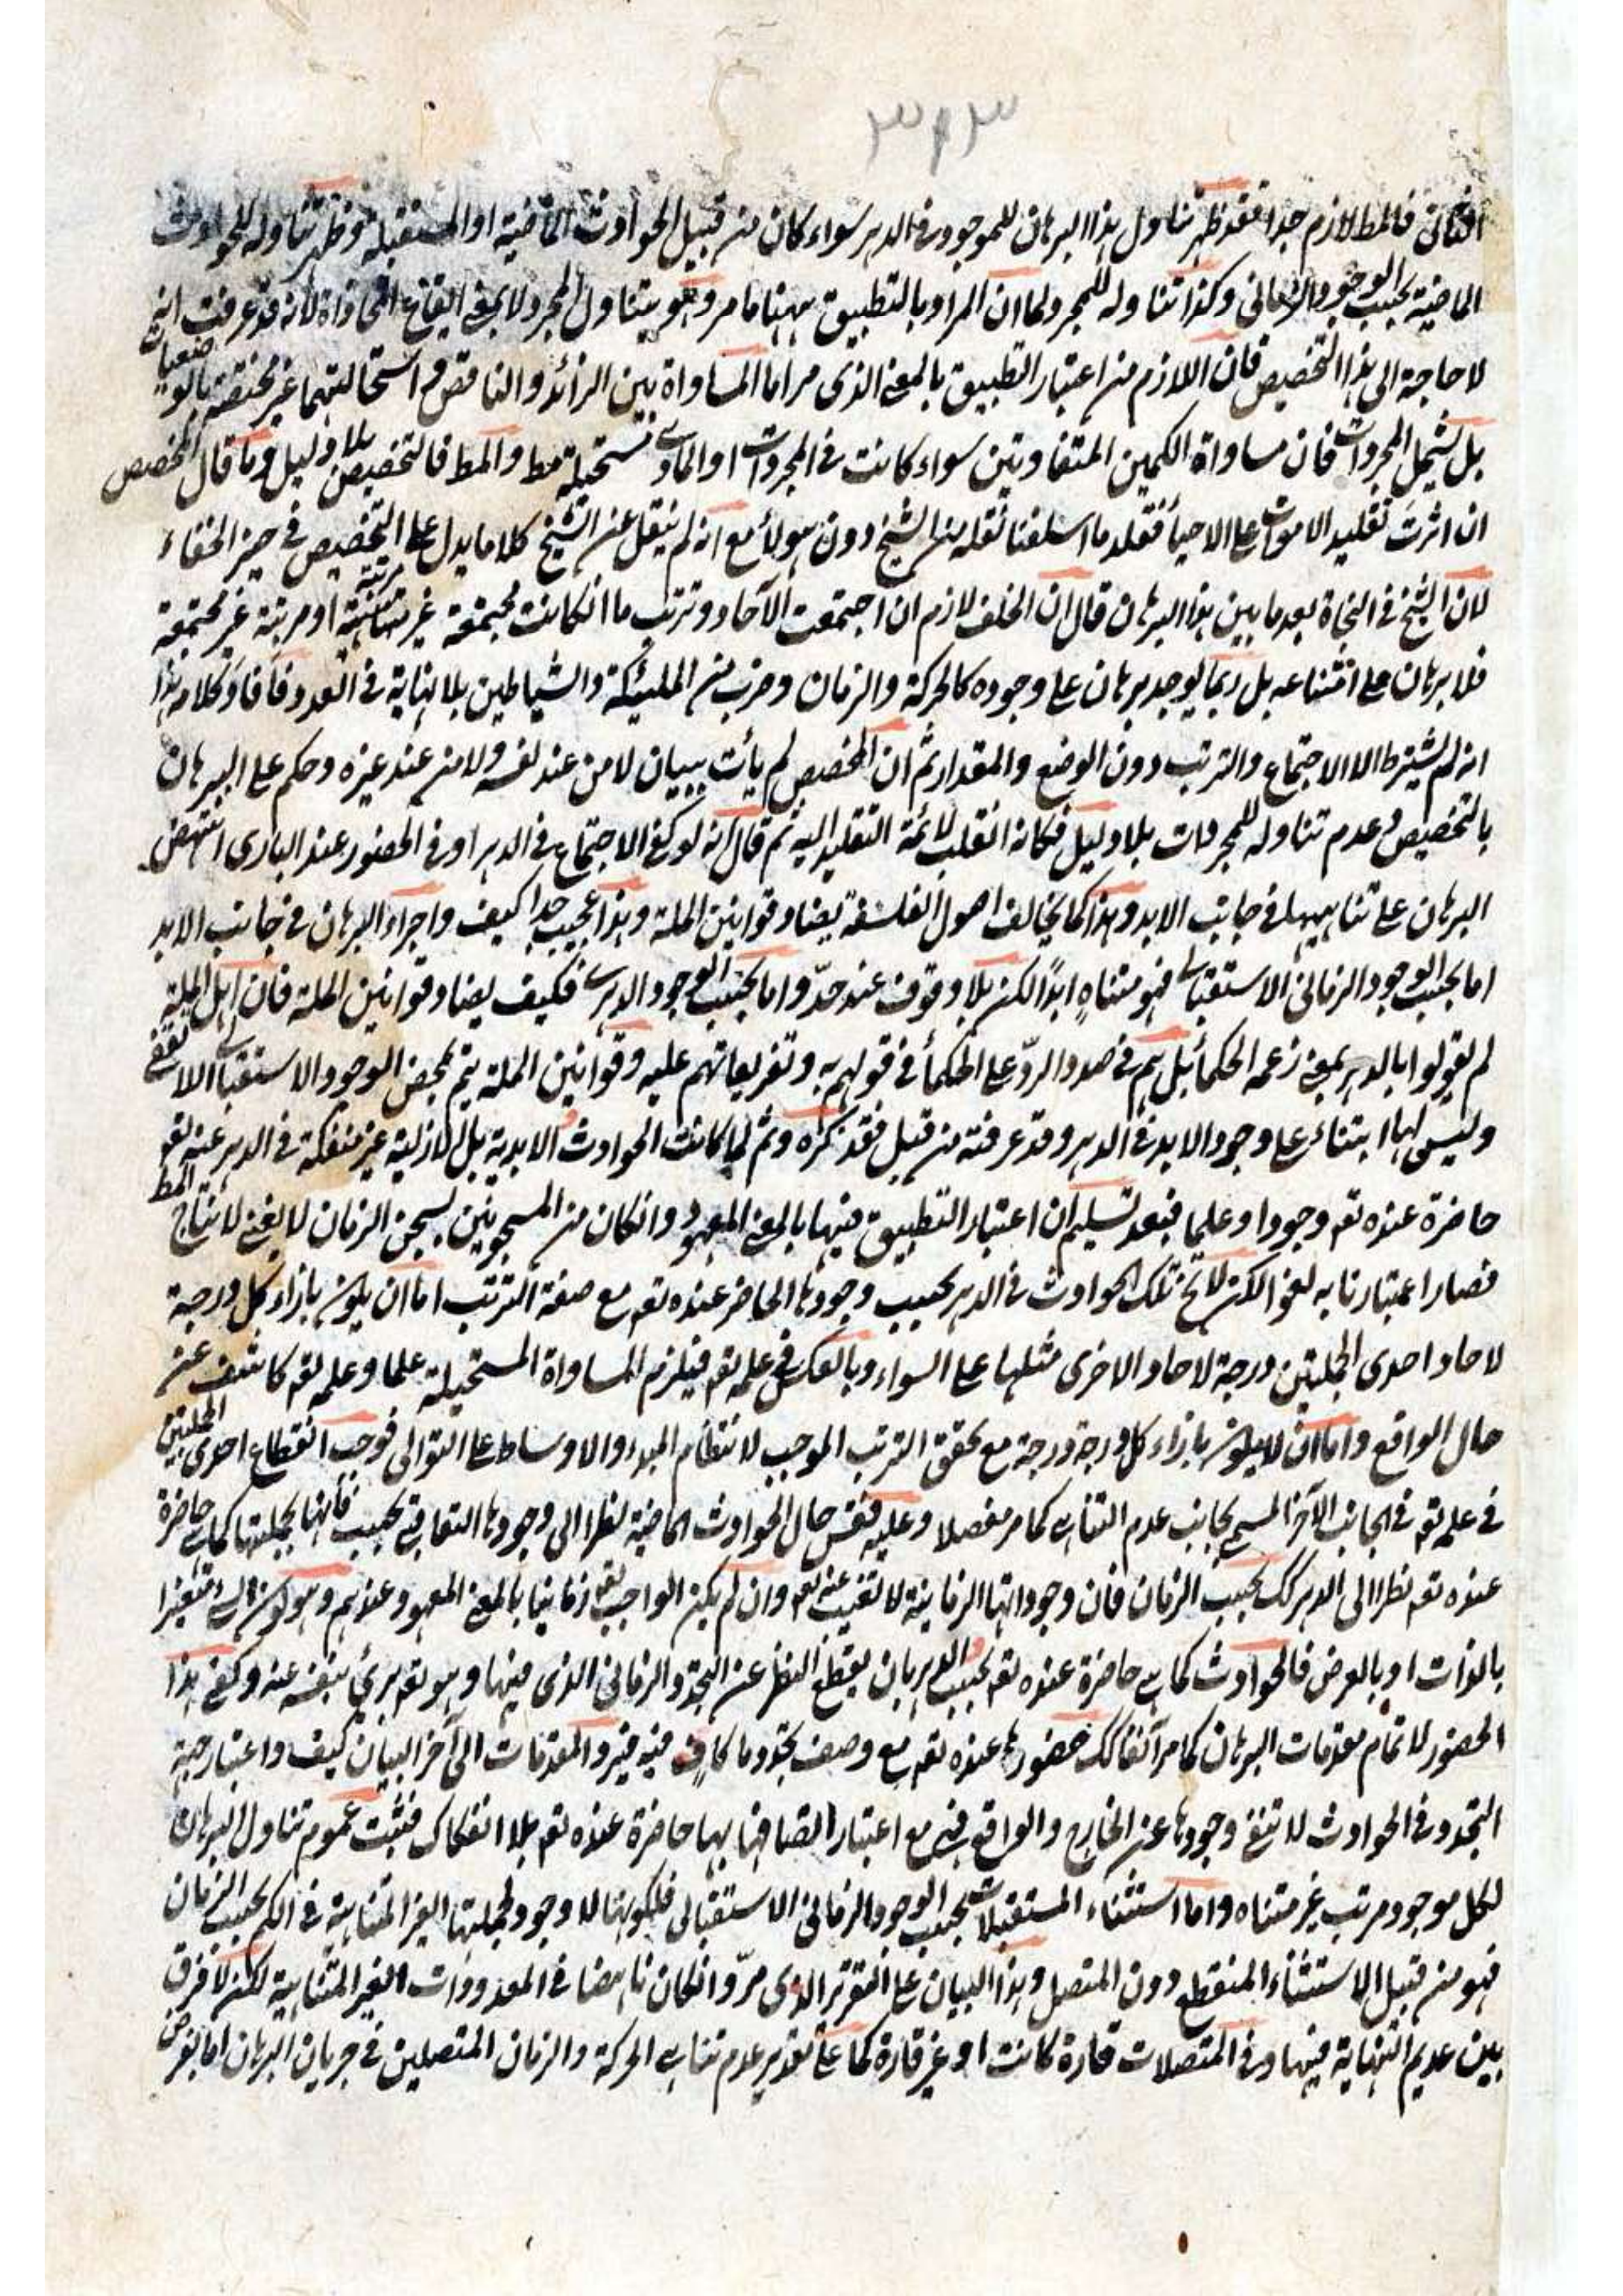 ٣١٣
الثانى فالمط لازم جدا فقد ظهر تناول هذا البرهان للموجود فى الدهر سواء كان من قبيل الحوادث الماضية او المستقبلة وظهر تناوله للحوادث
الماضية بحسب الوجود الزمانى وكذا تناوله للمجرد لما ان المراد بالتطبيق ههنا ما مر وهو يتناول المجرد لا بمعنى ايقاع المحاذاة لانه قد عرفت انه
لا حاجة الى هذا التخصيص فان اللازم من اعتبار التطبيق بالمعنى الذى مر اما المساواة بين الزائد والناقص و استحالتهما غير مختصة بالوضعيات
بل يشمل المجردات فان مساواة الكمين المتفاوتين سواء كانت فى المجردات او الماديات مستحيلة مط والمط فالتخصيص بلا دليل وما قال المخصص
ان اثرت تقليد الاموات على الاحياء فقلد ما اسلفنا نقله من الشيخ دون هولاء مع انه لم ينقل عن الشيخ كلاما يدل على التخصيص فى حيز الخفاء
لان الشيخ فى النجاة بعد ما بين هذا البرهان قال ان الخلف لازم ان اجتمعت الآحاد وترتب ما ان كانت مجتمعة غير مرتبة او مرتبة غير مجتمعة
فلا برهان على امتناعه بل ربما يوجد برهان على وجوده كالحركة والزمان وضرب من الملئكة والشياطين بلا نهاية فى العدد فأفاد كلامه هذا
انه لم يشترط الا الاجتماع والترتب دون الوضع والمقدار ثم ان المخصص لم يأت ببيان لا من عند نفسه ولا من عند غيره وحكم على البرهان
بالتخصيص وعدم تناوله للمجردات بلا دليل فكانه انقلب لائمة التقليد اليه ثم قال انه لو كفى الاجتماع فى الدهر او فى الحضور عند البارى انتهض
البرهان على تناهيهما فى جانب الابد وهذا كما يخالف اصول الفلسفة يضاد قوانين الملة وهذا عجيب جدا كيف واجراء البرهان فى جانب الابد
اما بحسب الوجود الزمانى الاستقبالى فهو متناه ابدًا لكن بلا وقوف عند حدّ واما بحسب الوجود الدهرى فكيف يضاد قوانين الملة فان اهل الملة
لم يقولوا بالدهر بمعنى زعمه الحكماء بل هم فى صدد الردّ على الحكماء فى قولهم به وتفريعاتهم عليه وقوانين الملة يتم بمحض الوجود الاستقبالى اللايقفى
وليس لها ابتناء على وجود الابد فى الدهر وقد عرفته من قبل فقد نكره وثم لما كانت الحوادث الابدية بل الازلية غير منفكة فى الدهر عنه تعه
حاضرة عنده تعه وجودا وعلما فبعد تسليم ان اعتبار التطبيق فيها بالمعنى المعهود وان كان من المسجونين بسجن الزمان لا يغنى لانتاج المط
فصار اعتبارنا به لغوا لكن لا يخ تلك الحوادث فى الدهر بحسب وجودها الحاضر عنده تعه مع صفة الترتب اما ان يكون بازاء كل درجة
لاحاد احدى الجملتين درجة لاحاد الاخرى مثلها على السواء وبالعكس فى علمه تعه فيلزم المساواة المستحيلة علما وعلمه تعه كاشف عن
حال الواقع واما ان لا يكون بازاء كل درجة درجة مع تحقق الترتب الموجب لانتظام المبدء والاوساط على التوالى فوجب انقطاع احدى الجملتين
فى علمه تعه فى الجانب الآخر المسمى بجانب عدم التناهى كما مر مفصلا وعليه فقس حال الحوادث الماضية نظرا الى وجودها التعاقبى بحسب فأنها بجملتها كما هى حاضرة
عنده تعه نظرا الى الدهر كك بحسب الزمان فان وجوداتها الزمانية لا تغيب عنه تعه وان لم يكن الواجب تعه زمانيا بالمعنى المعهود عندهم وهو كون الشئ متغيرا
بالذات او بالعرض فالحوادث كما هى حاضرة عنده تعه بحسب الدهر بان يقطع النظر عن التجدد الزمانى الذى فيها وهو تعه برئ بنفسه عنه وكفى هذا
الحضور لاتمام مقدمات البرهان كما مر آنفا كك حضورها عنده تعه مع وصف تجددها كاف فيه فيتم المقدمات الى آخر البيان كيف واعتبار جهة
التجدد فى الحوادث لا تنفى وجودها عن الخارج والواقع فهى مع اعتبار اتصافها بها حاضرة عنده تعه بلا انفكاك فثبت عموم تناول البرهان
لكل موجود مرتب غير متناه واما استثناء المستقبلات بحسب الوجود الزمانى الاستقبالى فلكونها لا وجود لجملتها الغير المتناهية فى الكم بحسب الزمان
فهو من قبيل الاستثناء المنقطع دون المتصل وهذا البيان على التقرير الذى مرّ وان كان ناهضا فى المعدودات الغير المتناهية لكن لا فرق
بين عديم النهاية فيها وفى المتصلات قارة كانت او غير قارة كما على تقدير عدم تناهى الحركة والزمان المتصلين فى جريان البرهان اما بفرض